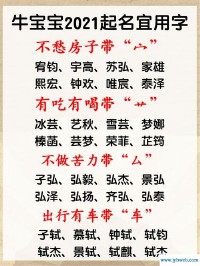 牛宝宝2021起名宜用字
不愁房子带“宀”
宥钧、宇高、苏弘、家雄
熙宏、钟欢、唯宸、泰泽
有吃有喝带“艹”
冰芸、艺秋、雪芸、梦娜
榛菡、芸梦、荣菲、芷筠
不做苦力带“厶”
子弘、弘毅、弘杰、景弘
弘泽、弘扬、齐弘、弘泰
出行有车带“车”
子轼、慕轼、钟轼、轼钧
轼杰、景轼、轼麒、轼杰